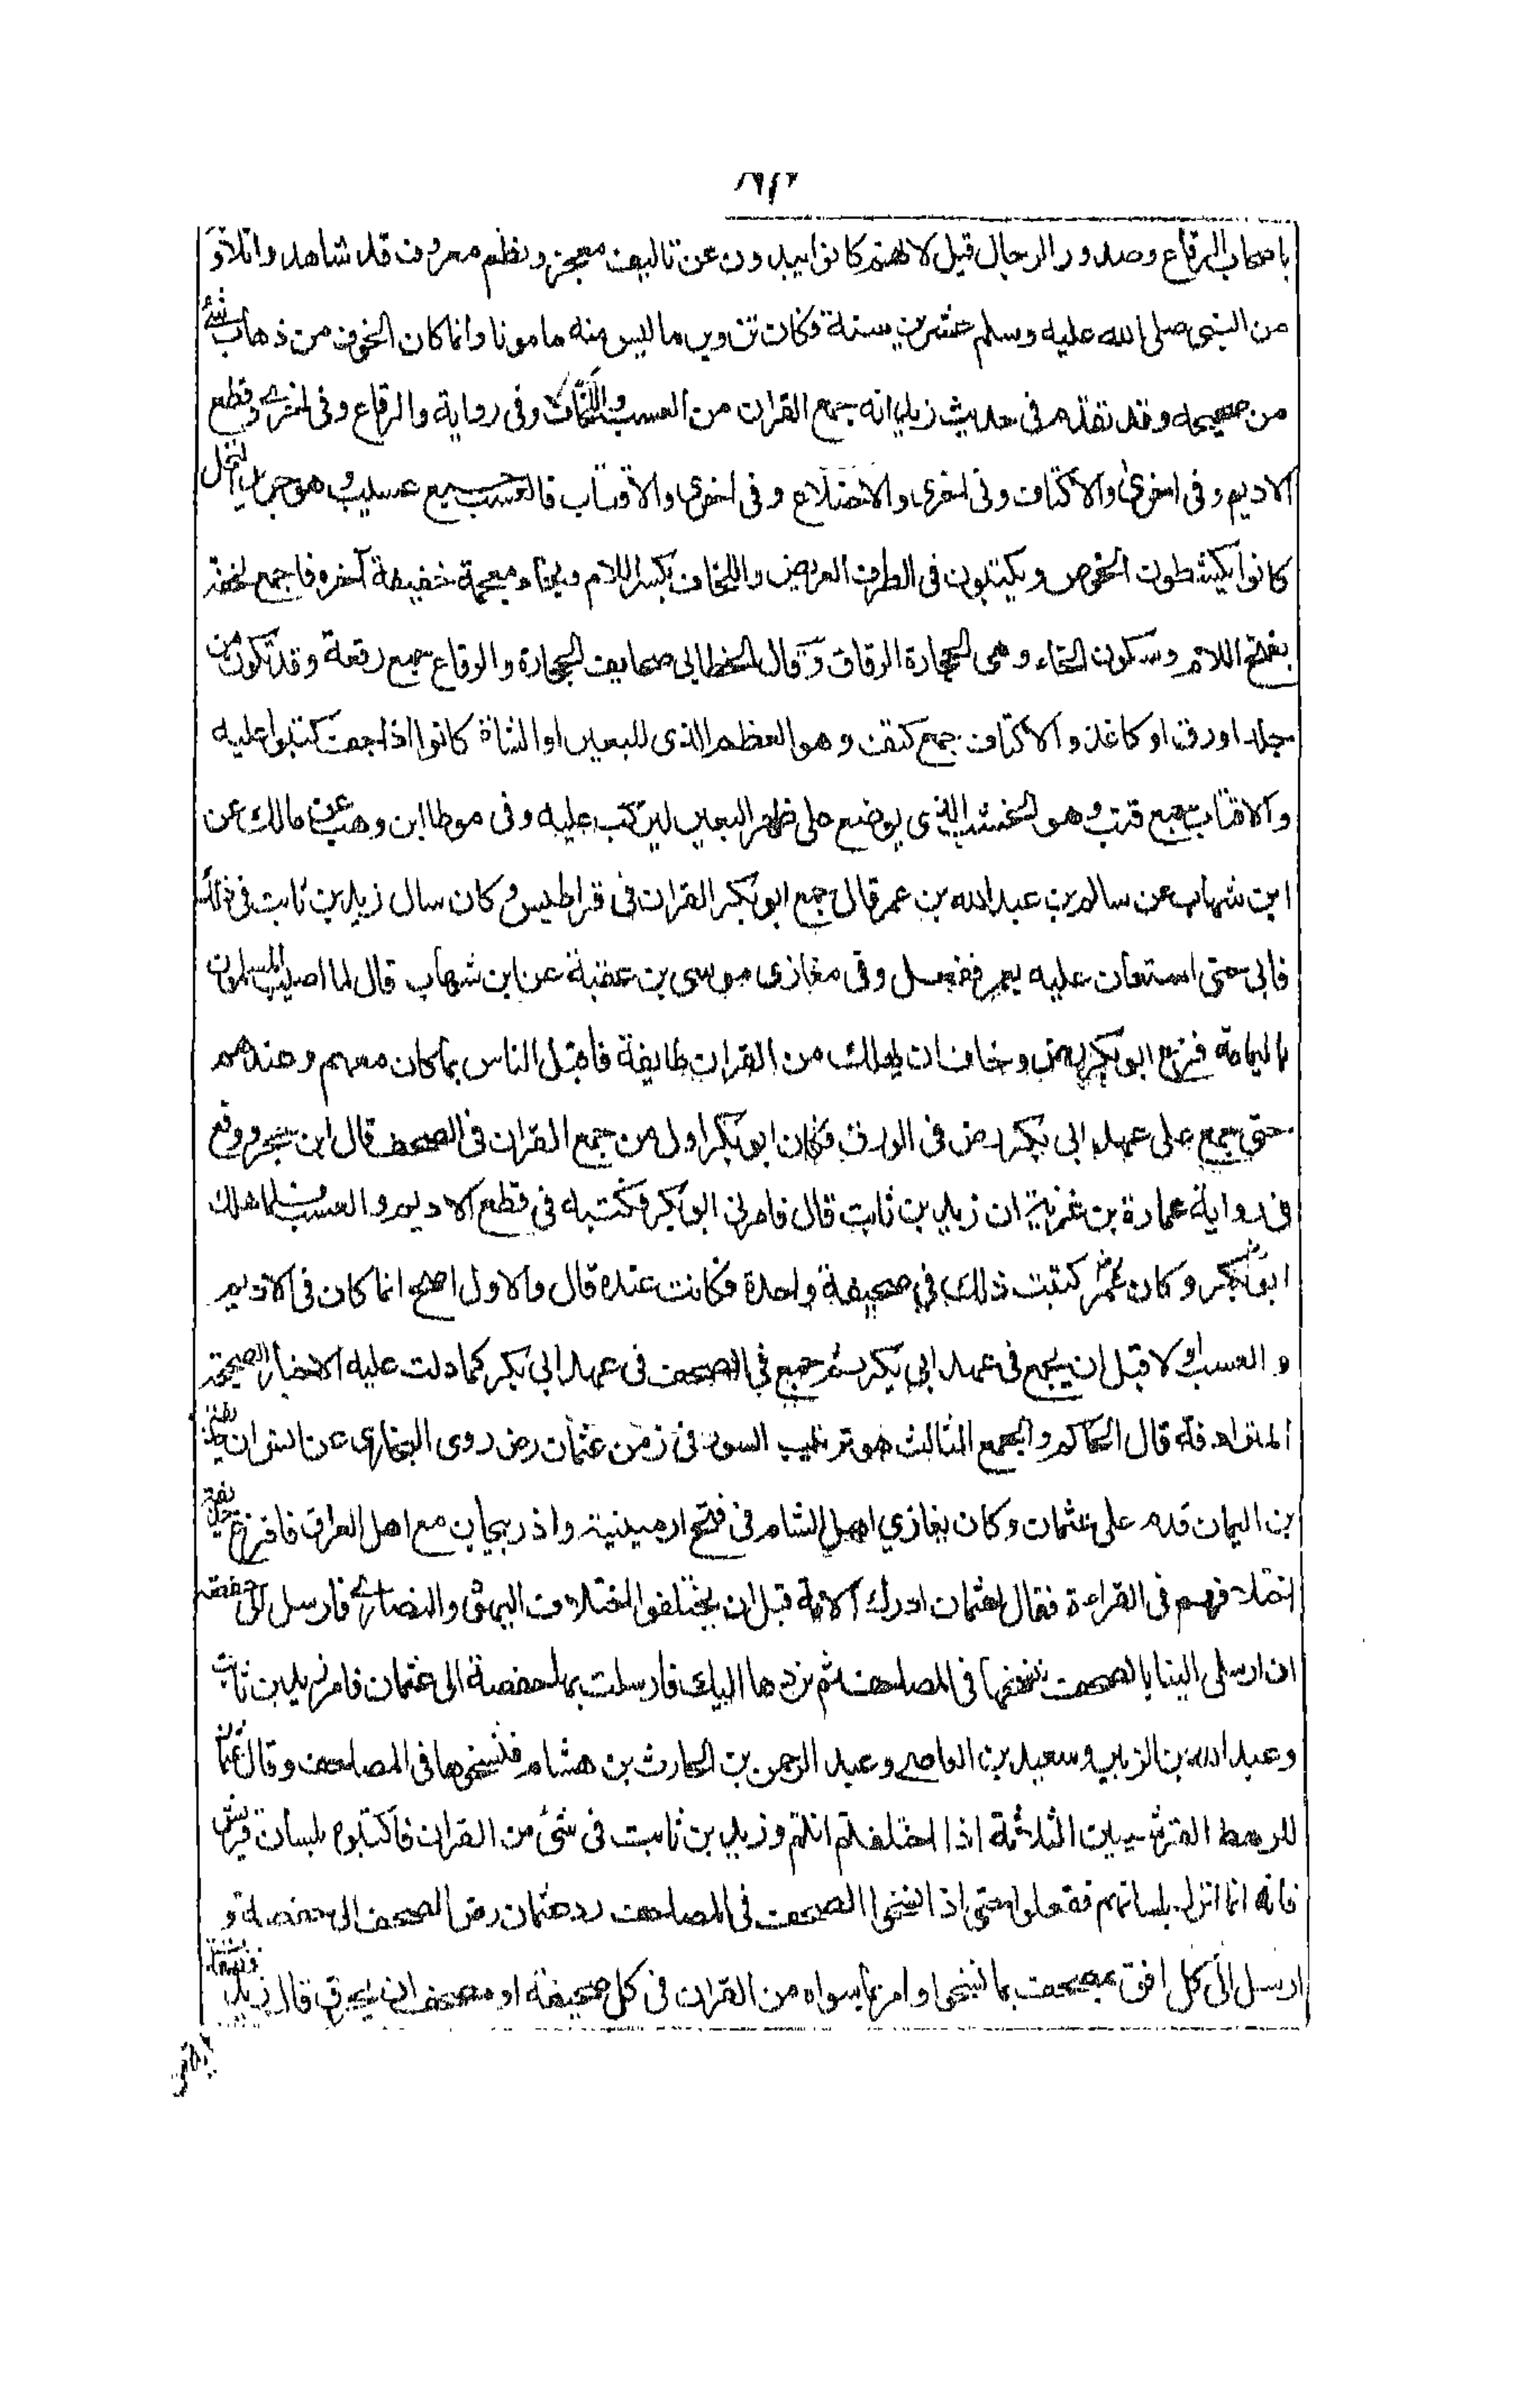 باصحاب الرقاع وصدور الرجال قيل لانهم كانوا يبدون عن تاليف معجز ونظم معروف قد شاهدوا تلاوته
من النبي صلى الله عليه وسلم عشرين سنة فكان تزوير ما ليس منه مامونا وانما كان الخوف من ذهاب شئ
من صحيحه وقد تقدم في حديث زيد انه جمع القران من العسب واللخاف وفي رواية والرقاع وفي اخرى وقطع
الاديم وفي اخرى والاكتاف وفي اخرى والاضلاع وفي اخرى والاقتاب فالعسب جمع عسيب وهو جريد النخل
كانوا يكشطون الخوص ويكتبون في الطرف العريض واللخاف بكسر اللام وبخاء معجمة خفيفة آخره فا جمع لخفة
بفتح اللام وسكون الخاء وهي الحجارة الرقاق وقال الخطابي صحايف الحجارة والرقاع جمع رقعة وقد تكون من
جلد او رق او كاغذ والاكتاف جمع كتف وهو العظم الذي للبعير او الشاة كانوا اذا جف كتبوا عليه
والاقتاب جمع قتب وهو الخشب الذي يوضع على ظهر البعير ليركب عليه وفي موطا ابن وهب عن مالك عن
ابن شهاب عن سالم بن عبد الله بن عمر قال جمع ابو بكر القران في قراطيس وكان سال زيد بن ثابت في ذلك
فابى حتى استعان عليه بعمر ففعل وفي مغازي موسى بن عقبة عن ابن شهاب قال لما اصيب المسلمون
باليمامة فزع ابو بكر رض وخاف ان يهلك من القران طايفة فاقبل الناس بما كان معهم وعندهم
حتى جمع على عهد ابي بكر رض في الورق فكان ابو بكر اول من جمع القران في الصحف قال ابن حجر ووقع
في رواية عمارة بن غزية ان زيد بن ثابت قال فامرني ابو بكر فكتبه في قطع الاديم والعسب فلما هلك
ابو بكر وكان عمر كتبت ذلك في صحيفة واحدة فكانت عنده قال والاول اصح انما كان في الاديم
والعسب اولا قبل ان يجمع في عهد ابي بكر ثم جمع في الصحف في عهد ابي بكر كما دلت عليه الاخبار الصحيحة
المترادفة قال الحاكم والجمع الثالث هو ترتيب السور في زمن عثمان رض روى البخاري عن انس ان حذيفة
بن اليمان قدم على عثمان وكان يغازي اهل الشام في فتح ارمينية واذربيجان مع اهل العراق فافزع حذيفة
اختلافهم في القراءة فقال لعثمان ادرك الامة قبل ان يختلفوا اختلاف اليهود والنصارى فارسل الى حفصة
ان ارسلى الينا بالصحف ننسخها في المصاحف ثم نردها اليك فارسلت بها حفصة الى عثمان فامر زيد بن ثابت
وعبد الله بن الزبير وسعيد بن العاص وعبد الرحمن بن الحارث بن هشام فنسخوها في المصاحف وقال عثمان
للرهط القرشيين الثلاثة اذا اختلفتم انتم وزيد بن ثابت في شئ من القران فاكتبوه بلسان قريش
فانه انما انزل بلسانهم ففعلوا حتى اذا نسخوا الصحف في المصاحف رد عثمان رض الصحف الى حفصة و
ارسل الى كل افق بمصحف بما نسخوا وامر بما سواه من القران في كل صحيفة او مصحف ان يحرق قال زيد